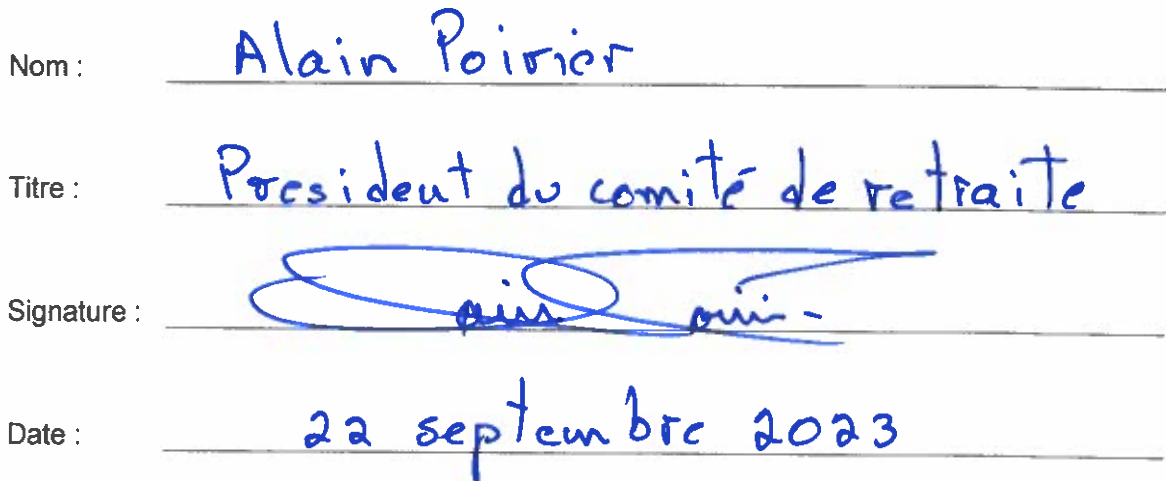 Nom : Alain Poirier
Titre : President du comité de retraite
Signature :
Date : 22 septembre 2023